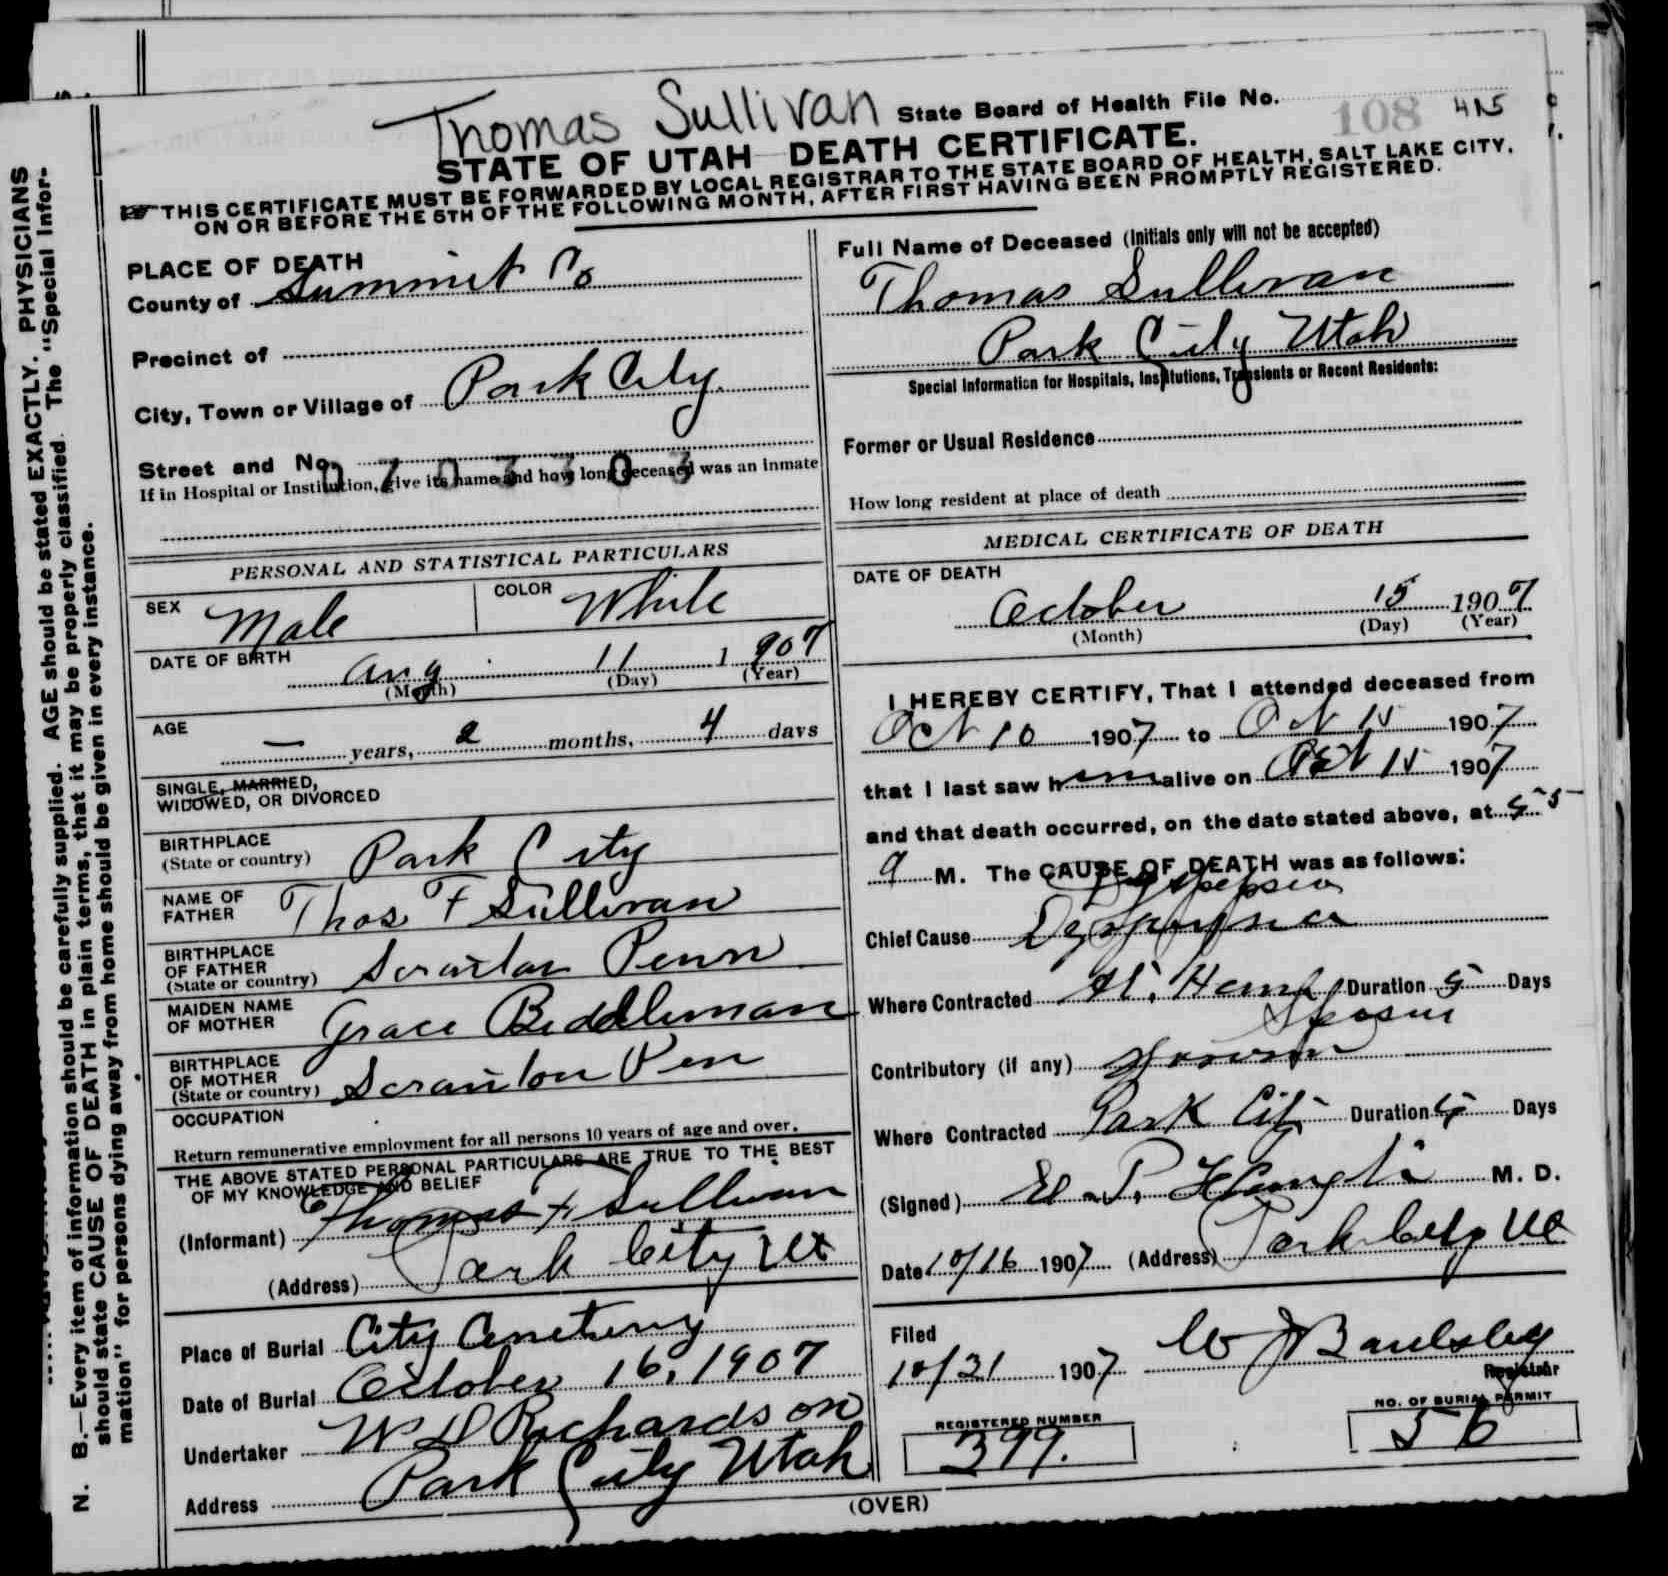 Thomas Sullivan State Board of Health File No. 108 415
STATE OF UTAH DEATH CERTIFICATE.
THIS CERTIFICATE MUST BE FORWARDED BY LOCAL REGISTRAR TO THE STATE BOARD OF HEALTH, SALT LAKE CITY,
ON OR BEFORE THE 5TH OF THE FOLLOWING MONTH, AFTER FIRST HAVING BEEN PROMPTLY REGISTERED.
PLACE OF DEATH
County of Summit Co
Precinct of
City, Town or Village of Park City.
Street and No.
If in Hospital or Institution, give its name and how long deceased was an inmate
PERSONAL AND STATISTICAL PARTICULARS
SEX Male COLOR White
DATE OF BIRTH Aug 11 1 907
(Month) (Day) (Year)
AGE — years, 2 months, 4 days
SINGLE, MARRIED,
WIDOWED, OR DIVORCED
BIRTHPLACE
(State or country) Park City
NAME OF
FATHER Thos F Sullivan
BIRTHPLACE
OF FATHER
(State or country) Scranton Penn
MAIDEN NAME
OF MOTHER Grace Biddleman
BIRTHPLACE
OF MOTHER
(State or country) Scranton Pen
OCCUPATION
Return remunerative employment for all persons 10 years of age and over.
THE ABOVE STATED PERSONAL PARTICULARS ARE TRUE TO THE BEST
OF MY KNOWLEDGE AND BELIEF
(Informant) Thomas F Sullivan
(Address) Park City Ut
Place of Burial City Cemetery
Date of Burial October 16, 1907
Undertaker W D Richardson
Address Park City Utah
Full Name of Deceased (Initials only will not be accepted)
Thomas Sullivan
Park City Utah
Special Information for Hospitals, Institutions, Transients or Recent Residents:
Former or Usual Residence
How long resident at place of death
MEDICAL CERTIFICATE OF DEATH
DATE OF DEATH
October 15 1907
(Month) (Day) (Year)
I HEREBY CERTIFY, That I attended deceased from
Oct 10 1907 to Oct 15 1907
that I last saw him alive on Oct 15 1907
and that death occurred, on the date stated above, at 5
a M. The CAUSE OF DEATH was as follows:
Dyspepsia
Chief Cause Dyspepsia
Where Contracted At Home Duration 5 Days
Contributory (if any)
Where Contracted Park City Duration 5 Days
(Signed) M. D.
Date 10/16 1907 (Address) Park City Ut
Filed
10/21 1907 W J
Registrar
REGISTERED NUMBER
399.
NO. OF BURIAL PERMIT
56
(OVER)
N. B.—Every item of information should be carefully supplied. AGE should be stated EXACTLY. PHYSICIANS
should state CAUSE OF DEATH in plain terms, that it may be properly classified. The "Special Infor-
mation" for persons dying away from home should be given in every instance.